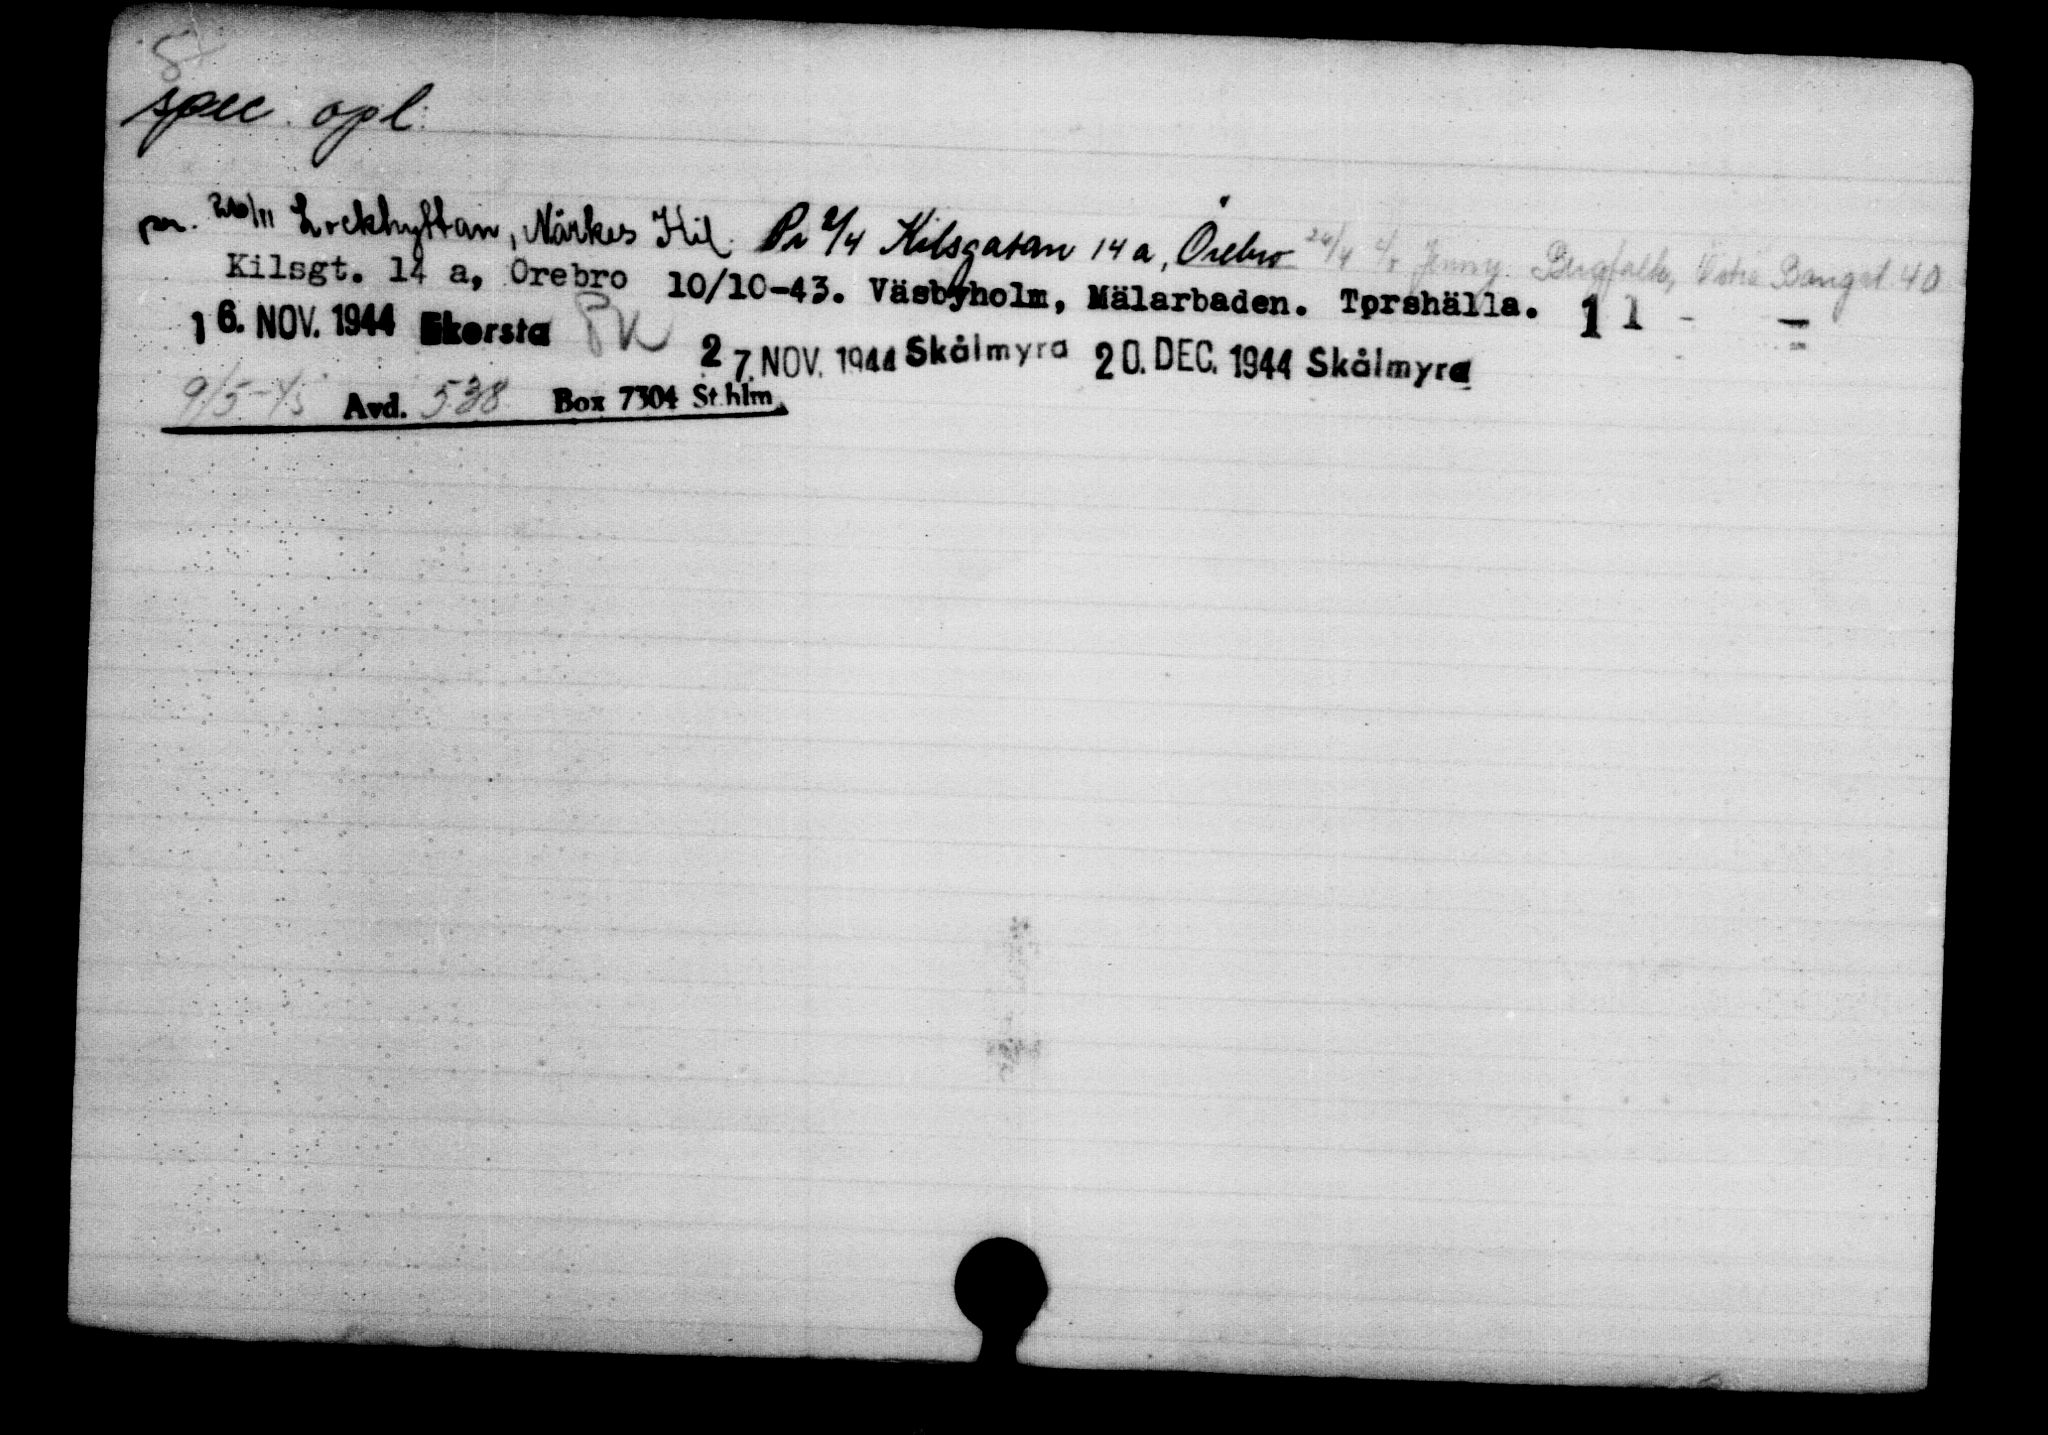 spec. opl.
pr. 20/11 Lockhyttan, Närkes Kil. Pr 2/4 Kilsgatan 14 a, Örebro 24/4 c/o Jenny Bergfalk, Västra Bangat. 40
Kilsgt. 14 a, Örebro 10/10-43. Väsbyholm, Mälarbaden. Torshälla. 1 1
16. NOV. 1944 Ekorsta PK 27. NOV. 1944 Skålmyra 20. DEC. 1944 Skålmyra
9/5-45 Avd. 538 Box 7304 Sthlm